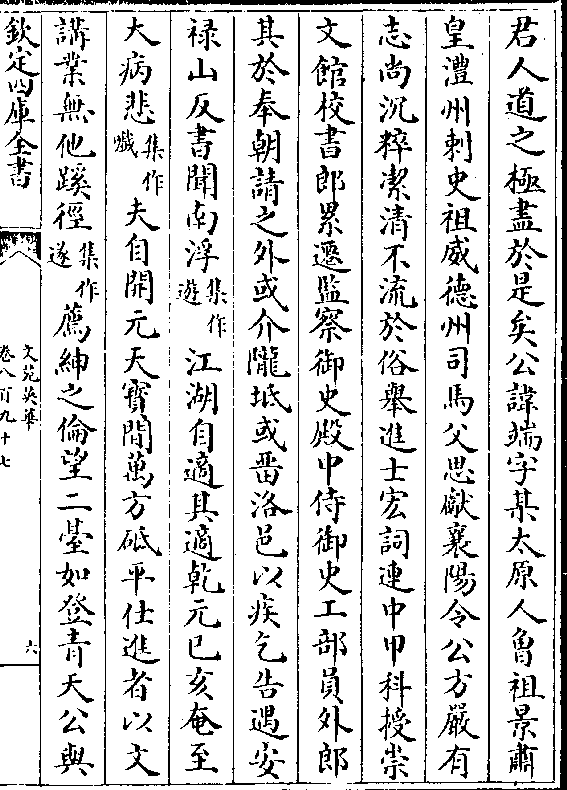 君人道之極盡於是矣公諱端字某太原人曾祖景肅
皇澧州刺史祖威德州司馬父思獻襄陽令公方嚴有
志尚沉粹潔清不流於俗舉進士宏詞連中甲科授崇
文館校書郎累遷監察御史殿中侍御史工部員外郎
其於奉朝請之外或介隴坻或畱洛邑以疾乞告遇安
禄山反書聞南浮集作遊江湖自適其適乾元已亥奄至
大病悲集作慨夫自開元天寶間萬方砥平仕進者以文
講業無他蹊徑集作遂薦紳之倫望二臺如登青天公與
欽定四庫全書
文苑英華
卷八百九十七
六